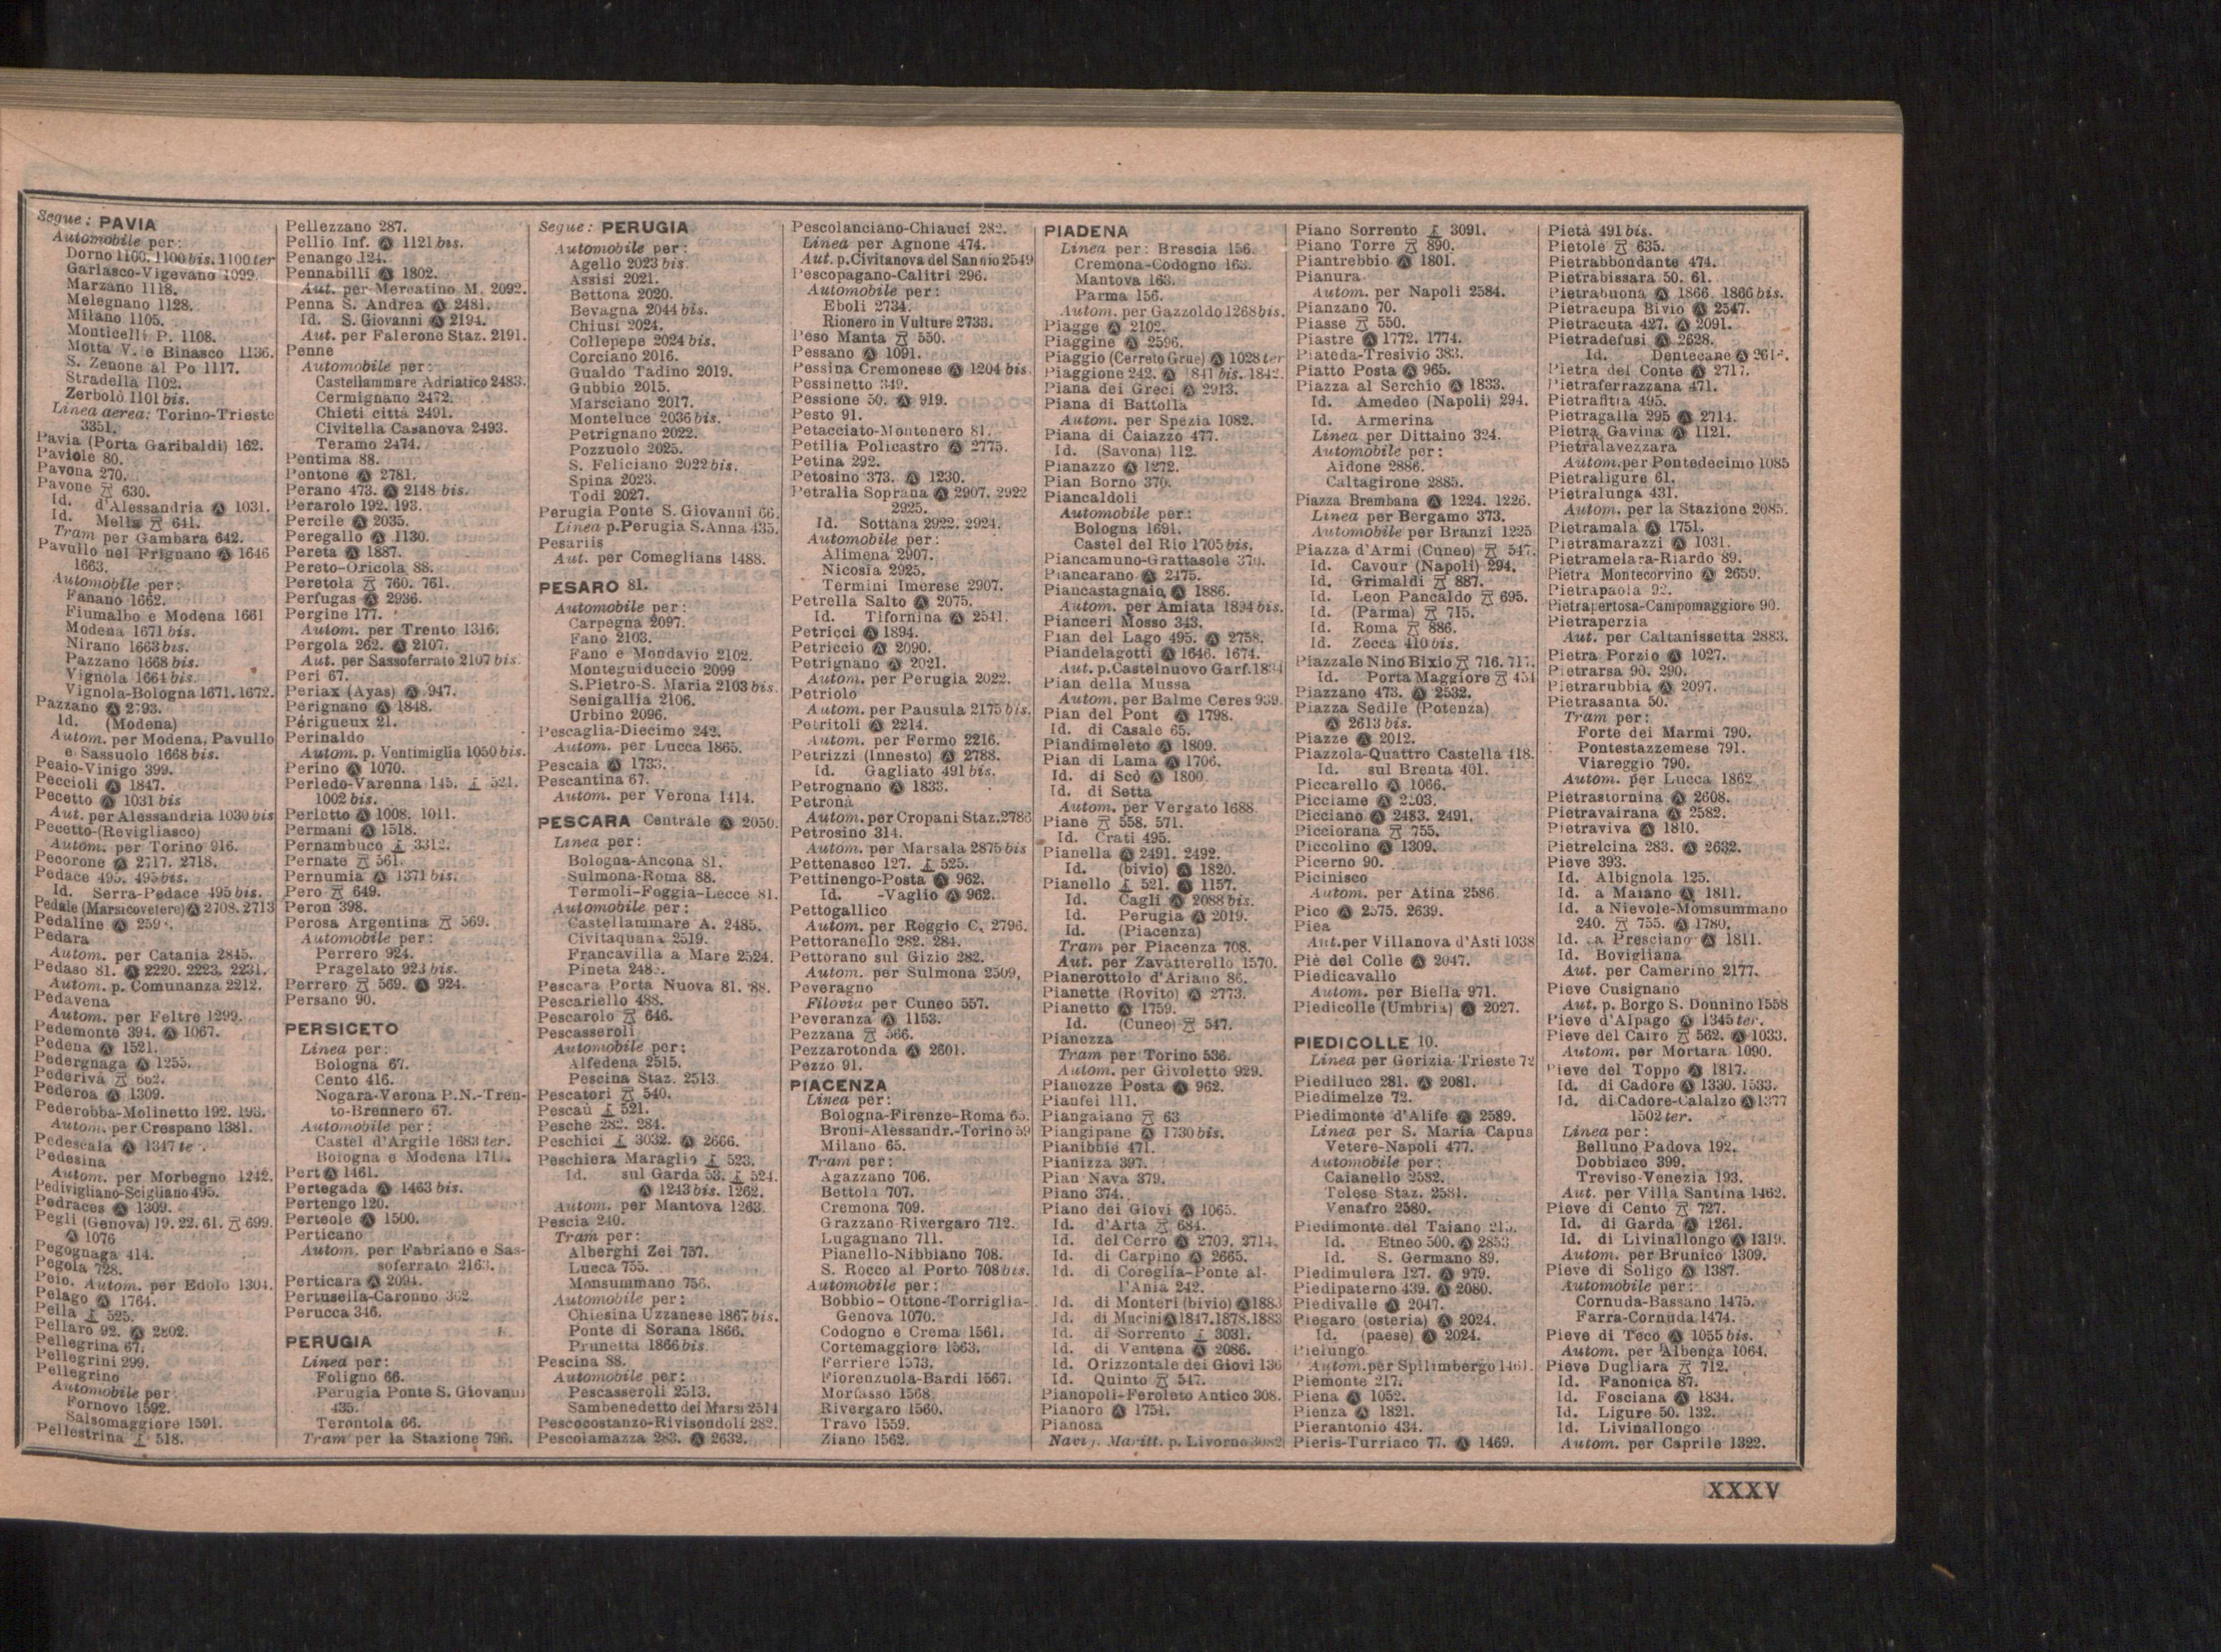 Segue: PAVIA
Automobile per:
Dorno 1100. 1100 bis. 1100 ter
Garlasco-Vigevano 1099.
Marzano 1118.
Melegnano 1128.
Milano 1105.
Monticelli P. 1108.
Motta V. e Binasco 1136.
S. Zenone al Po 1117.
Stradella 1102.
Zerbolò 1101 bis.
Linea aerea: Torino-Trieste
3351.
Pavia (Porta Garibaldi) 162.
Paviole 80.
Pavona 270.
Pavone 630.
Id. d'Alessandria Ⓐ 1031.
Id. Mella 641.
Tram per Gambara 642.
Pavullo nel Frignano Ⓐ 1646
1663.
Automobile per:
Fanano 1662.
Fiumalbo e Modena 1661
Modena 1671 bis.
Nirano 1663 bis.
Pazzano 1668 bis.
Vignola 1664 bis.
Vignola-Bologna 1671. 1672.
Pazzano Ⓐ 2793.
Id. (Modena)
Autom. per Modena, Pavullo
e Sassuolo 1668 bis.
Peaio-Vinigo 399.
Peccioli Ⓐ 1847.
Pecetto Ⓐ 1031 bis
Aut. per Alessandria 1030 bis
Pecetto-(Revigliasco)
Autom. per Torino 916.
Pecorone Ⓐ 2717. 2718.
Pedace 495. 495 bis.
Id. Serra-Pedace 495 bis.
Pedale (Marsicovetere) Ⓐ 2708. 2713
Pedaline Ⓐ
Pedara
Autom. per Catania 2845.
Pedaso 81. Ⓐ 2220. 2223. 2231.
Autom. p. Comunanza 2212.
Pedavena
Autom. per Feltre 1299.
Pedemonte 394. Ⓐ 1067.
Pedena Ⓐ 1521.
Pedergnaga Ⓐ 1255.
Pederiva 662.
Pederoa Ⓐ 1309.
Pederobba-Molinetto 192. 193.
Autom. per Crespano 1381.
Pedescala Ⓐ 1347
Pedesina
Autom. per Morbegno 1242.
Pedivigliano-Scigliano 495.
Pedraces Ⓐ 1309.
Pegli (Genova) 19. 22. 61. 699.
Ⓐ 1076
Pegognaga 414.
Pegola 728.
Peio. Autom. per Edolo 1304.
Pelago Ⓐ 1764.
Pella 525.
Pellaro 92. Ⓐ 2802.
Pellegrina 67.
Pellegrini 299.
Pellegrino
Automobile per
Fornovo 1592.
Salsomaggiore 1591.
Pellestrina 518.
Pellezzano 287.
Pellio Inf. Ⓐ 1121 bis.
Penango 124.
Pennabilli Ⓐ 1802.
Aut. per Mercatino M. 2092.
Penna S. Andrea Ⓐ 2481.
Id. S. Giovanni Ⓐ 2194.
Aut. per Falerone Staz. 2191.
Penne
Automobile per:
Castellammare Adriatico 2483.
Cermignano 2472.
Chieti città 2491.
Civitella Casanova 2493.
Teramo 2474.
Pentima 88.
Pentone Ⓐ 2781.
Perano 473. Ⓐ 2148 bis.
Perarolo 192. 193.
Percile Ⓐ 2035.
Peregallo Ⓐ 1130.
Pereta Ⓐ 1887.
Pereto-Oricola 88.
Peretola 760. 761.
Perfugas Ⓐ 2936.
Pergine 177.
Autom. per Trento 1316.
Pergola 262. Ⓐ 2107.
Aut. per Sassoferrato 2107 bis.
Peri 67.
Periax (Ayas) Ⓐ 947.
Perignano Ⓐ 1848.
Périgueux 21.
Perinaldo
Autom. p. Ventimiglia 1050 bis.
Perino Ⓐ 1070.
Perledo-Varenna 145. 521.
1002 bis.
Perlotto Ⓐ 1008. 1011.
Permani Ⓐ 1518.
Pernambuco 3312.
Pernate 561.
Pernumia Ⓐ 1371 bis.
Pero 649.
Peron 398.
Perosa Argentina 569.
Automobile per:
Perrero 924.
Pragelato 923 bis.
Perrero 569. Ⓐ 924.
Persano 90.
PERSICETO
Linea per:
Bologna 67.
Cento 416.
Nogara-Verona P.N.-Tren-
to-Brennero 67.
Automobile per:
Castel d'Argile 1683 ter.
Bologna e Modena
Pert Ⓐ 1461.
Pertegada Ⓐ 1463 bis.
Pertengo 120.
Perteole Ⓐ 1500.
Perticano
Autom. per Fabriano e Sas-
soferrato 2163.
Perticara Ⓐ 2094.
Pertusella-Caronno 362.
Perucca 346.
PERUGIA
Linea per:
Foligno 66.
Perugia Ponte S. Giovanni
435.
Terontola 66.
Tram per la Stazione 796.
Segue: PERUGIA
Automobile per:
Agello 2023 bis.
Assisi 2021.
Bettona 2020.
Bevagna 2044 bis.
Chiusi 2024.
Collepepe 2024 bis.
Corciano 2016.
Gualdo Tadino 2019.
Gubbio 2015.
Marsciano 2017.
Monteluce 2036 bis.
Petrignano 2022.
Pozzuolo 2025.
S. Feliciano 2022 bis.
Spina 2023.
Todi 2027.
Perugia Ponte S. Giovanni 66.
Linea p. Perugia S. Anna 435.
Pesariis
Aut. per Comeglians 1488.
PESARO 81.
Automobile per:
Carpegna 2097.
Fano 2103.
Fano e Mondavio 2102.
Monteguiduccio 2099
S. Pietro-S. Maria 2103 bis.
Senigallia 2106.
Urbino 2096.
Pescaglia-Diecimo 242.
Autom. per Lucca 1865.
Pescaia Ⓐ 1733.
Pescantina 67.
Autom. per Verona 1414.
PESCARA Centrale Ⓐ 2050.
Linea per:
Bologna-Ancona 81.
Sulmona-Roma 88.
Termoli-Foggia-Lecce 81.
Automobile per:
Castellammare A. 2485.
Civitaquana 2519.
Francavilla a Mare 2524.
Pineta
Pescara Porta Nuova 81. 88.
Pescariello 488.
Pescarolo 646.
Pescasseroli
Automobile per:
Alfedena 2515.
Pescina Staz. 2513.
Pescatori 540.
Pescaù 521.
Pesche 282. 284.
Peschici 3032. Ⓐ 2666.
Peschiera Maraglio 523.
Id. sul Garda 53. 524.
Ⓐ 1243 bis. 1262.
Autom. per Mantova 1263.
Pescia 240.
Tram per:
Alberghi Zei 757.
Lucca 755.
Monsummano 756.
Automobile per:
Chiesina Uzzanese 1867 bis.
Ponte di Sorana 1866.
Prunetta 1866 bis.
Pescina 88.
Automobile per:
Pescasseroli 2513.
Sambenedetto dei Marsi 2514
Pescocostanzo-Rivisondoli 282.
Pescolamazza 283. Ⓐ 2632.
Pescolanciano-Chiauci 282.
Linea per Agnone 474.
Aut. p. Civitanova del Sannio 2549
Pescopagano-Calitri 296.
Automobile per:
Eboli 2734.
Rionero in Vulture 2733.
Peso Manta 550.
Pessano Ⓐ 1091.
Pessina Cremonese Ⓐ 1204 bis
Pessinetto 349.
Pessione 50. Ⓐ 919.
Pesto 91.
Petacciato-Montenero 81.
Petilia Policastro Ⓐ 2775.
Petina 292.
Petosino 373. Ⓐ 1230.
Petralia Soprana Ⓐ 2907. 2922
2925.
Id. Sottana 2922. 2924.
Automobile per:
Alimena 2907.
Nicosia 2925.
Termini Imerese 2907.
Petrella Salto Ⓐ 2075.
Id. Tifornina Ⓐ 2541.
Petricci Ⓐ 1894.
Petriccio Ⓐ 2090.
Petrignano Ⓐ 2021.
Autom. per Perugia 2022.
Petriolo
Autom. per Pausula 2175 bis.
Petritoli Ⓐ 2214.
Autom. per Fermo 2216.
Petrizzi (Innesto) Ⓐ 2788.
Id. Gagliato 491 bis.
Petrognano Ⓐ 1833.
Petronà
Autom. per Cropani Staz. 2786
Petrosino 314.
Autom. per Marsala 2875 bis
Pettenasco 127. 525.
Pettinengo-Posta Ⓐ 962.
Id. -Vaglio Ⓐ 962.
Pettogallico
Autom. per Reggio C. 2796.
Pettoranello 282. 284.
Pettorano sul Gizio 282.
Autom. per Sulmona 2509.
Peveragno
Filovia per Cuneo 557.
Peveranza Ⓐ 1153.
Pezzana 566.
Pezzarotonda Ⓐ 2601.
Pezzo 91.
PIACENZA
Linea per:
Bologna-Firenze-Roma 65.
Broni-Alessandr.-Torino 59
Milano 65.
Tram per:
Agazzano 706.
Bettola 707.
Cremona 709.
Grazzano-Rivergaro 712.
Lugagnano 711.
Pianello-Nibbiano 708.
S. Rocco al Porto 708 bis.
Automobile per:
Bobbio-Ottone-Torriglia-
Genova 1070.
Codogno e Crema 1561.
Cortemaggiore 1563.
Ferriere 1573.
Fiorenzuola-Bardi 1567.
Morfasso 1568.
Rivergaro 1560.
Travo 1559.
Ziano 1562.
PIADENA
Linea per: Brescia 156.
Cremona-Codogno 163.
Mantova 163.
Parma 156.
Autom. per Gazzoldo 1268 bis.
Piagge Ⓐ 2102.
Piaggine Ⓐ 2596.
Piaggio (Cerreto Grue) Ⓐ 1028 ter
Piaggione 242. Ⓐ 1841 bis. 1842.
Piana dei Greci Ⓐ 2913.
Piana di Battolla
Autom. per Spezia 1082.
Piana di Caiazzo 477.
Id. (Savona) 112.
Pianazzo Ⓐ 1272.
Pian Borno 379.
Piancaldoli
Automobile per:
Bologna 1691.
Castel del Rio 1705 bis.
Piancamuno-Grattasole 379.
Piancarano Ⓐ 2475.
Piancastagnaio Ⓐ 1886.
Autom. per Amiata 1894 bis.
Pianceri Mosso 343.
Pian del Lago 495. Ⓐ 2758.
Piandelagotti Ⓐ 1646. 1674.
Aut. p. Castelnuovo Garf. 1834
Pian della Mussa
Autom. per Balme Ceres 939.
Pian del Pont Ⓐ 1798.
Id. di Casale 65.
Piandimeleto Ⓐ 1809.
Pian di Lama Ⓐ 1706.
Id. di Scò Ⓐ 1800.
Id. di Setta
Autom. per Vergato 1688.
Piane 558. 571.
Id. Crati 495.
Pianella Ⓐ 2491. 2492.
Id. (bivio) Ⓐ 1820.
Pianello 521. Ⓐ 1157.
Id. Cagli Ⓐ 2088 bis.
Id. Perugia Ⓐ 2019.
Id. (Piacenza)
Tram per Piacenza 708.
Aut. per Zavatterello 1570.
Pianerottolo d'Ariano 86.
Pianette (Rovito) Ⓐ 2773.
Pianetto Ⓐ 1759.
Id. (Cuneo) 547.
Pianezza
Tram per Torino 536.
Autom. per Givoletto 929.
Pianezze Posta Ⓐ 962.
Pianfei 111.
Piangaiano 63
Piangipane Ⓐ 1730 bis.
Pianibbie 471.
Pianizza 397.
Pian Nava 379.
Piano 374.
Piano dei Giovi Ⓐ 1065.
Id. d'Arta 684.
Id. del Cerro Ⓐ 2709. 2714.
Id. di Carpino Ⓐ 2665.
Id. di Coreglia-Ponte al-
l'Ania 242.
Id. di Monteri (bivio) Ⓐ 1883
Id. di Mucini Ⓐ 1847. 1878. 1883
Id. di Sorrento 3031.
Id. di Ventena Ⓐ 2086.
Id. Orizzontale dei Giovi 136
Id. Quinto 547.
Pianopoli-Feroleto Antico 308.
Pianoro Ⓐ 1751.
Pianosa
Navig. Maritt. p. Livorno 3082
Piano Sorrento 3091.
Piano Torre 890.
Piantrebbio Ⓐ 1801.
Pianura
Autom. per Napoli 2584.
Pianzano 70.
Piasse 550.
Piastre Ⓐ 1772. 1774.
Piateda-Tresivio 383.
Piatto Posta Ⓐ 965.
Piazza al Serchio Ⓐ 1833.
Id. Amedeo (Napoli) 294.
Id. Armerina
Linea per Dittaino 324.
Automobile per:
Aidone 2886.
Caltagirone 2885.
Piazza Brembana Ⓐ 1224. 1226.
Linea per Bergamo 373.
Automobile per Branzi 1225
Piazza d'Armi (Cuneo) 547.
Id. Cavour (Napoli) 294.
Id. Grimaldi 887.
Id. Leon Pancaldo 695.
Id. (Parma) 715.
Id. Roma 886.
Id. Zecca 410 bis.
Piazzale Nino Bixio 716. 717.
Id. Porta Maggiore 454
Piazzano 473. Ⓐ 2532.
Piazza Sedile (Potenza)
Ⓐ 2613 bis.
Piazze Ⓐ 2012.
Piazzola-Quattro Castella 418.
Id. sul Brenta 401.
Piccarello Ⓐ 1066.
Picciame Ⓐ 2203.
Picciano Ⓐ 2483. 2491.
Picciorana 755.
Piccolino Ⓐ 1309.
Picerno 90.
Picinisco
Autom. per Atina 2586.
Pico Ⓐ 2575. 2639.
Piea
Aut. per Villanova d'Asti 1038
Piè del Colle Ⓐ 2047.
Piedicavallo
Autom. per Biella 971.
Piedicolle (Umbria) Ⓐ 2027.
PIEDICOLLE 10.
Linea per Gorizia-Trieste 72
Piediluco 281. Ⓐ 2081.
Piedimelze 72.
Piedimonte d'Alife Ⓐ 2589.
Linea per S. Maria Capua
Vetere-Napoli 477.
Automobile per:
Caianello 2582.
Telese Staz. 2581.
Venafro 2580.
Piedimonte del Taiano
Id. Etneo 500. Ⓐ 2853
Id. S. Germano 89.
Piedimulera 127. Ⓐ 979.
Piedipaterno 439. Ⓐ 2080.
Piedivalle Ⓐ 2047.
Piegaro (osteria) Ⓐ 2024.
Id. (paese) Ⓐ 2024.
Pielungo
Autom. per Spilimbergo 1461.
Piemonte 217.
Piena Ⓐ 1052.
Pienza Ⓐ 1821.
Pierantonio 434.
Pieris-Turriaco 77. Ⓐ 1469.
Pietà 491 bis.
Pietole 635.
Pietrabbondante 474.
Pietrabissara 50. 61.
Pietrabuona Ⓐ 1866. 1866 bis.
Pietracupa Bivio Ⓐ 2547.
Pietracuta 427. Ⓐ 2091.
Pietradefusi Ⓐ 2628.
Id. Dentecane Ⓐ
Pietra del Conte Ⓐ 2717.
Pietraferrazzana 471.
Pietrafitta 495.
Pietragalla 295 Ⓐ 2714.
Pietra Gavina Ⓐ 1121.
Pietralavezzara
Autom. per Pontedecimo 1085
Pietraligure 61.
Pietralunga 431.
Autom. per la Stazione 2085.
Pietramala Ⓐ 1751.
Pietramarazzi Ⓐ 1031.
Pietramelara-Riardo 89.
Pietra Montecorvino Ⓐ 2659.
Pietrapaola 92.
Pietrapertosa-Campomaggiore 90.
Pietraperzia
Aut. per Caltanissetta 2883.
Pietra Porzio Ⓐ 1027.
Pietrarsa 90. 290.
Pietrarubbia Ⓐ 2097.
Pietrasanta 50.
Tram per:
Forte dei Marmi 790.
Pontestazzemese 791.
Viareggio 790.
Autom. per Lucca 1862.
Pietrastornina Ⓐ 2608.
Pietravairana Ⓐ 2582.
Pietraviva Ⓐ 1810.
Pietrelcina 283. Ⓐ 2632.
Pieve 393.
Id. Albignola 125.
Id. a Maiano Ⓐ 1811.
Id. a Nievole-Momsummano
240. 755. Ⓐ 1780.
Id. a Presciano Ⓐ 1811.
Id. Bovigliana
Aut. per Camerino 2177.
Pieve Cusignano
Aut. p. Borgo S. Donnino 1558
Pieve d'Alpago Ⓐ 1345 ter.
Pieve del Cairo 562. Ⓐ 1033.
Autom. per Mortara 1090.
Pieve del Toppo Ⓐ 1817.
Id. di Cadore Ⓐ 1330. 1533.
Id. di Cadore-Calalzo Ⓐ 1377
1502 ter.
Linea per:
Belluno Padova 192.
Dobbiaco 399.
Treviso-Venezia 193.
Aut. per Villa Santina 1462.
Pieve di Cento 727.
Id. di Garda Ⓐ 1261.
Id. di Livinallongo Ⓐ 1319.
Autom. per Brunico 1309.
Pieve di Soligo Ⓐ 1387.
Automobile per:
Cornuda-Bassano 1475.
Farra-Cornuda 1474.
Pieve di Teco Ⓐ 1055 bis.
Autom. per Albenga 1064.
Pieve Dugliara 712.
Id. Fanonica 87.
Id. Fosciana Ⓐ 1834.
Id. Ligure 50. 132.
Id. Livinallongo
Autom. per Caprile 1322.
XXXV